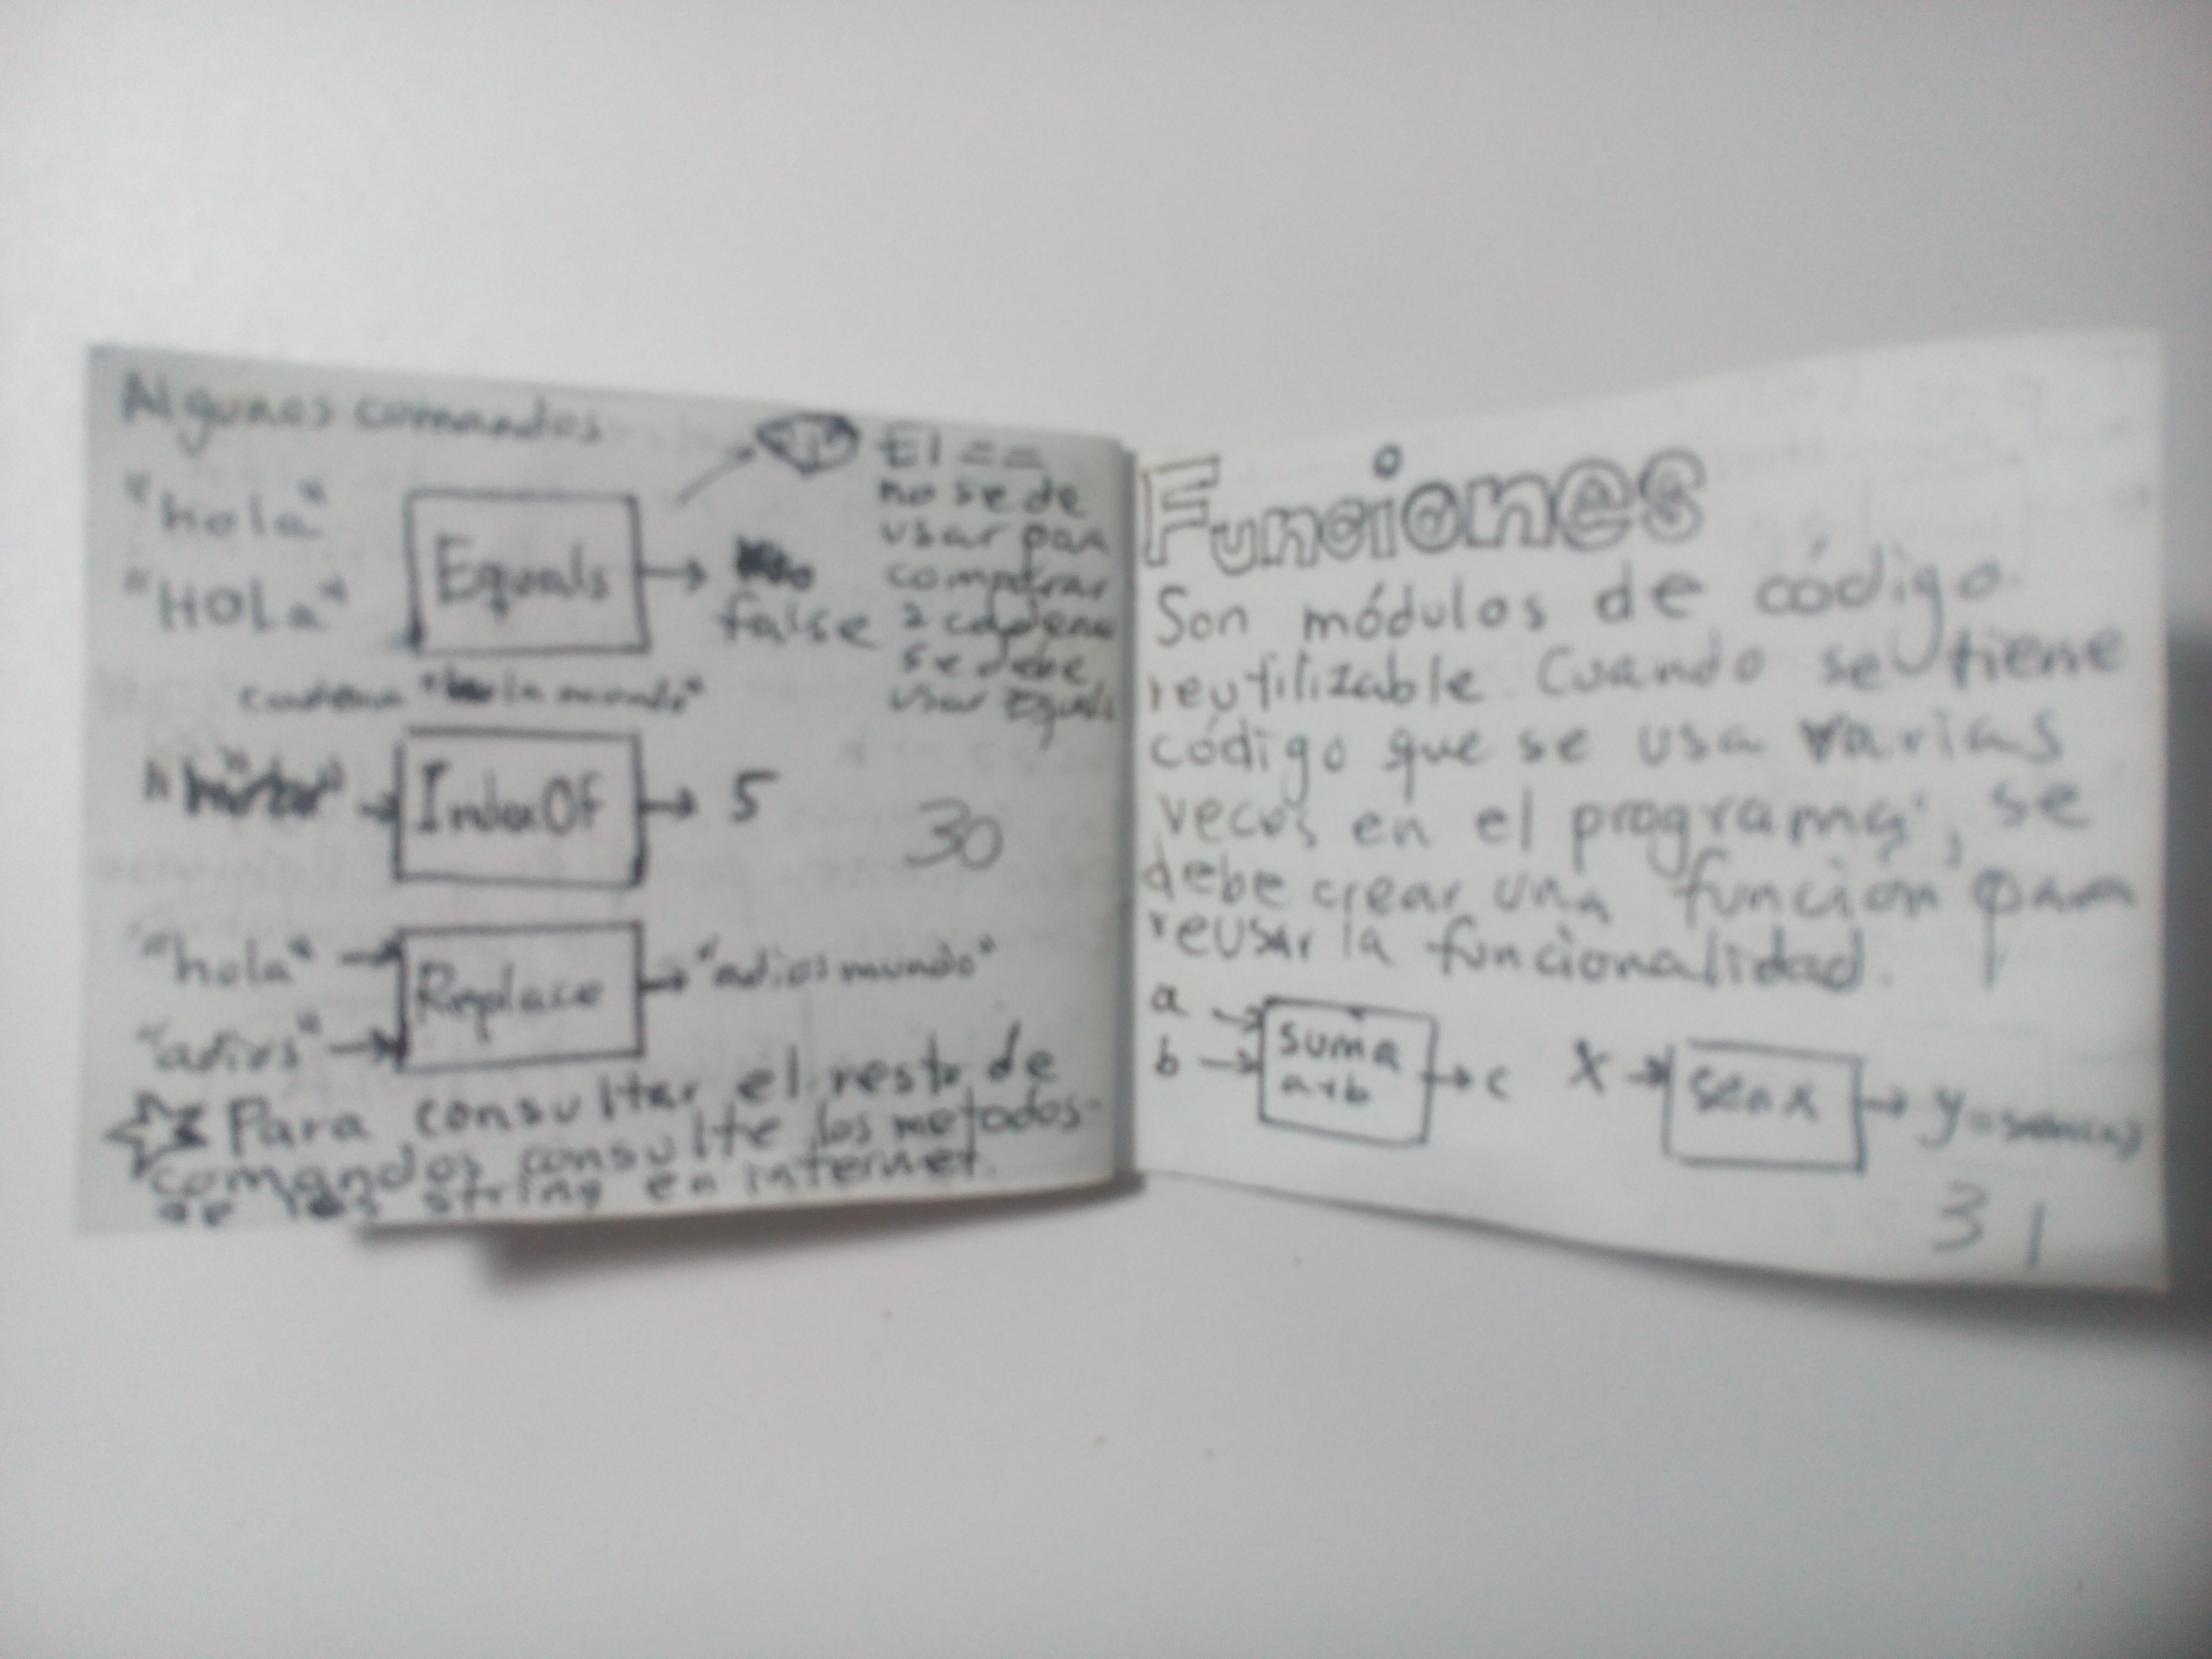 Algunos comandos
"hola"
"HOLa"
Equals
false
El ==
no se de
usar para
comparar
2 cadenas
se debe
usar Equals
cadena "hola mundo"
IndexOf
5
30
"hola"
"adios"
Replace
"adios mundo"
Para consultar el resto de
comandos consulte los metodos
de los string en internet.
Funciones
Son módulos de código
reutilizable. Cuando se tiene
código que se usa varias
veces en el programa, se
debe crear una función para
reusar la funcionalidad.
a
b
suma
a+b
c
x
sen x
31